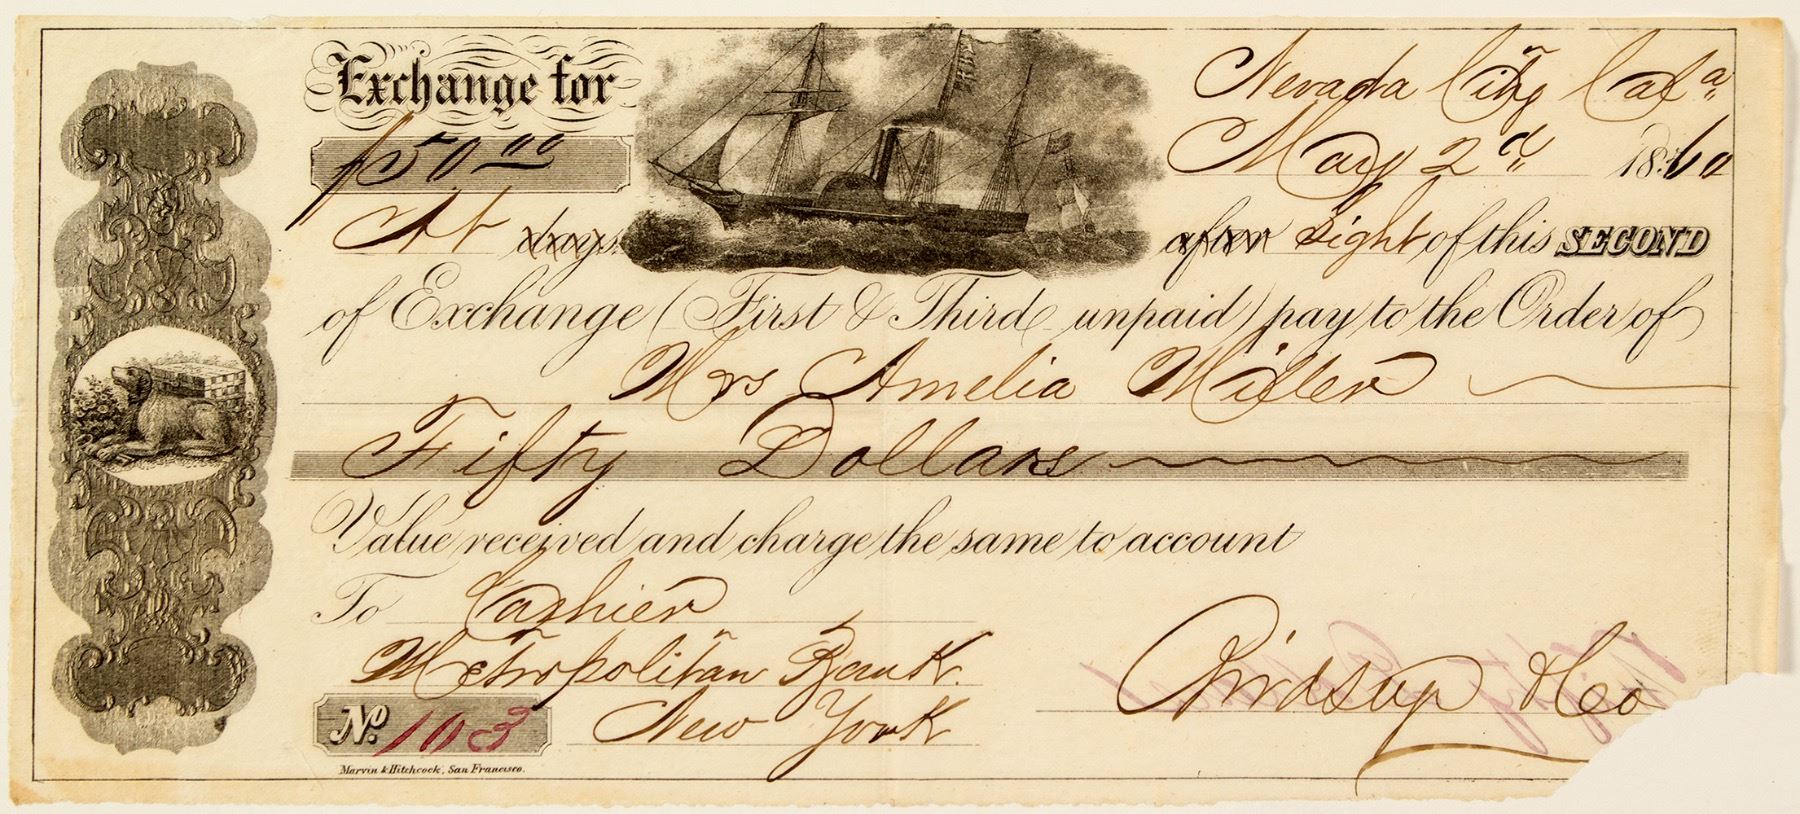 Exchange for
$50.00
Nevada City Cala
May 2d 1860
At days after sight of this SECOND
of Exchange (First & Third unpaid) pay to the Order of
Mrs Amelia Miller
Fifty Dollars
Value received and charge the same to account
To Cashier
Metropolitan Bank.
New York
& Co
No. 103
Marvin & Hitchcock, San Francisco.